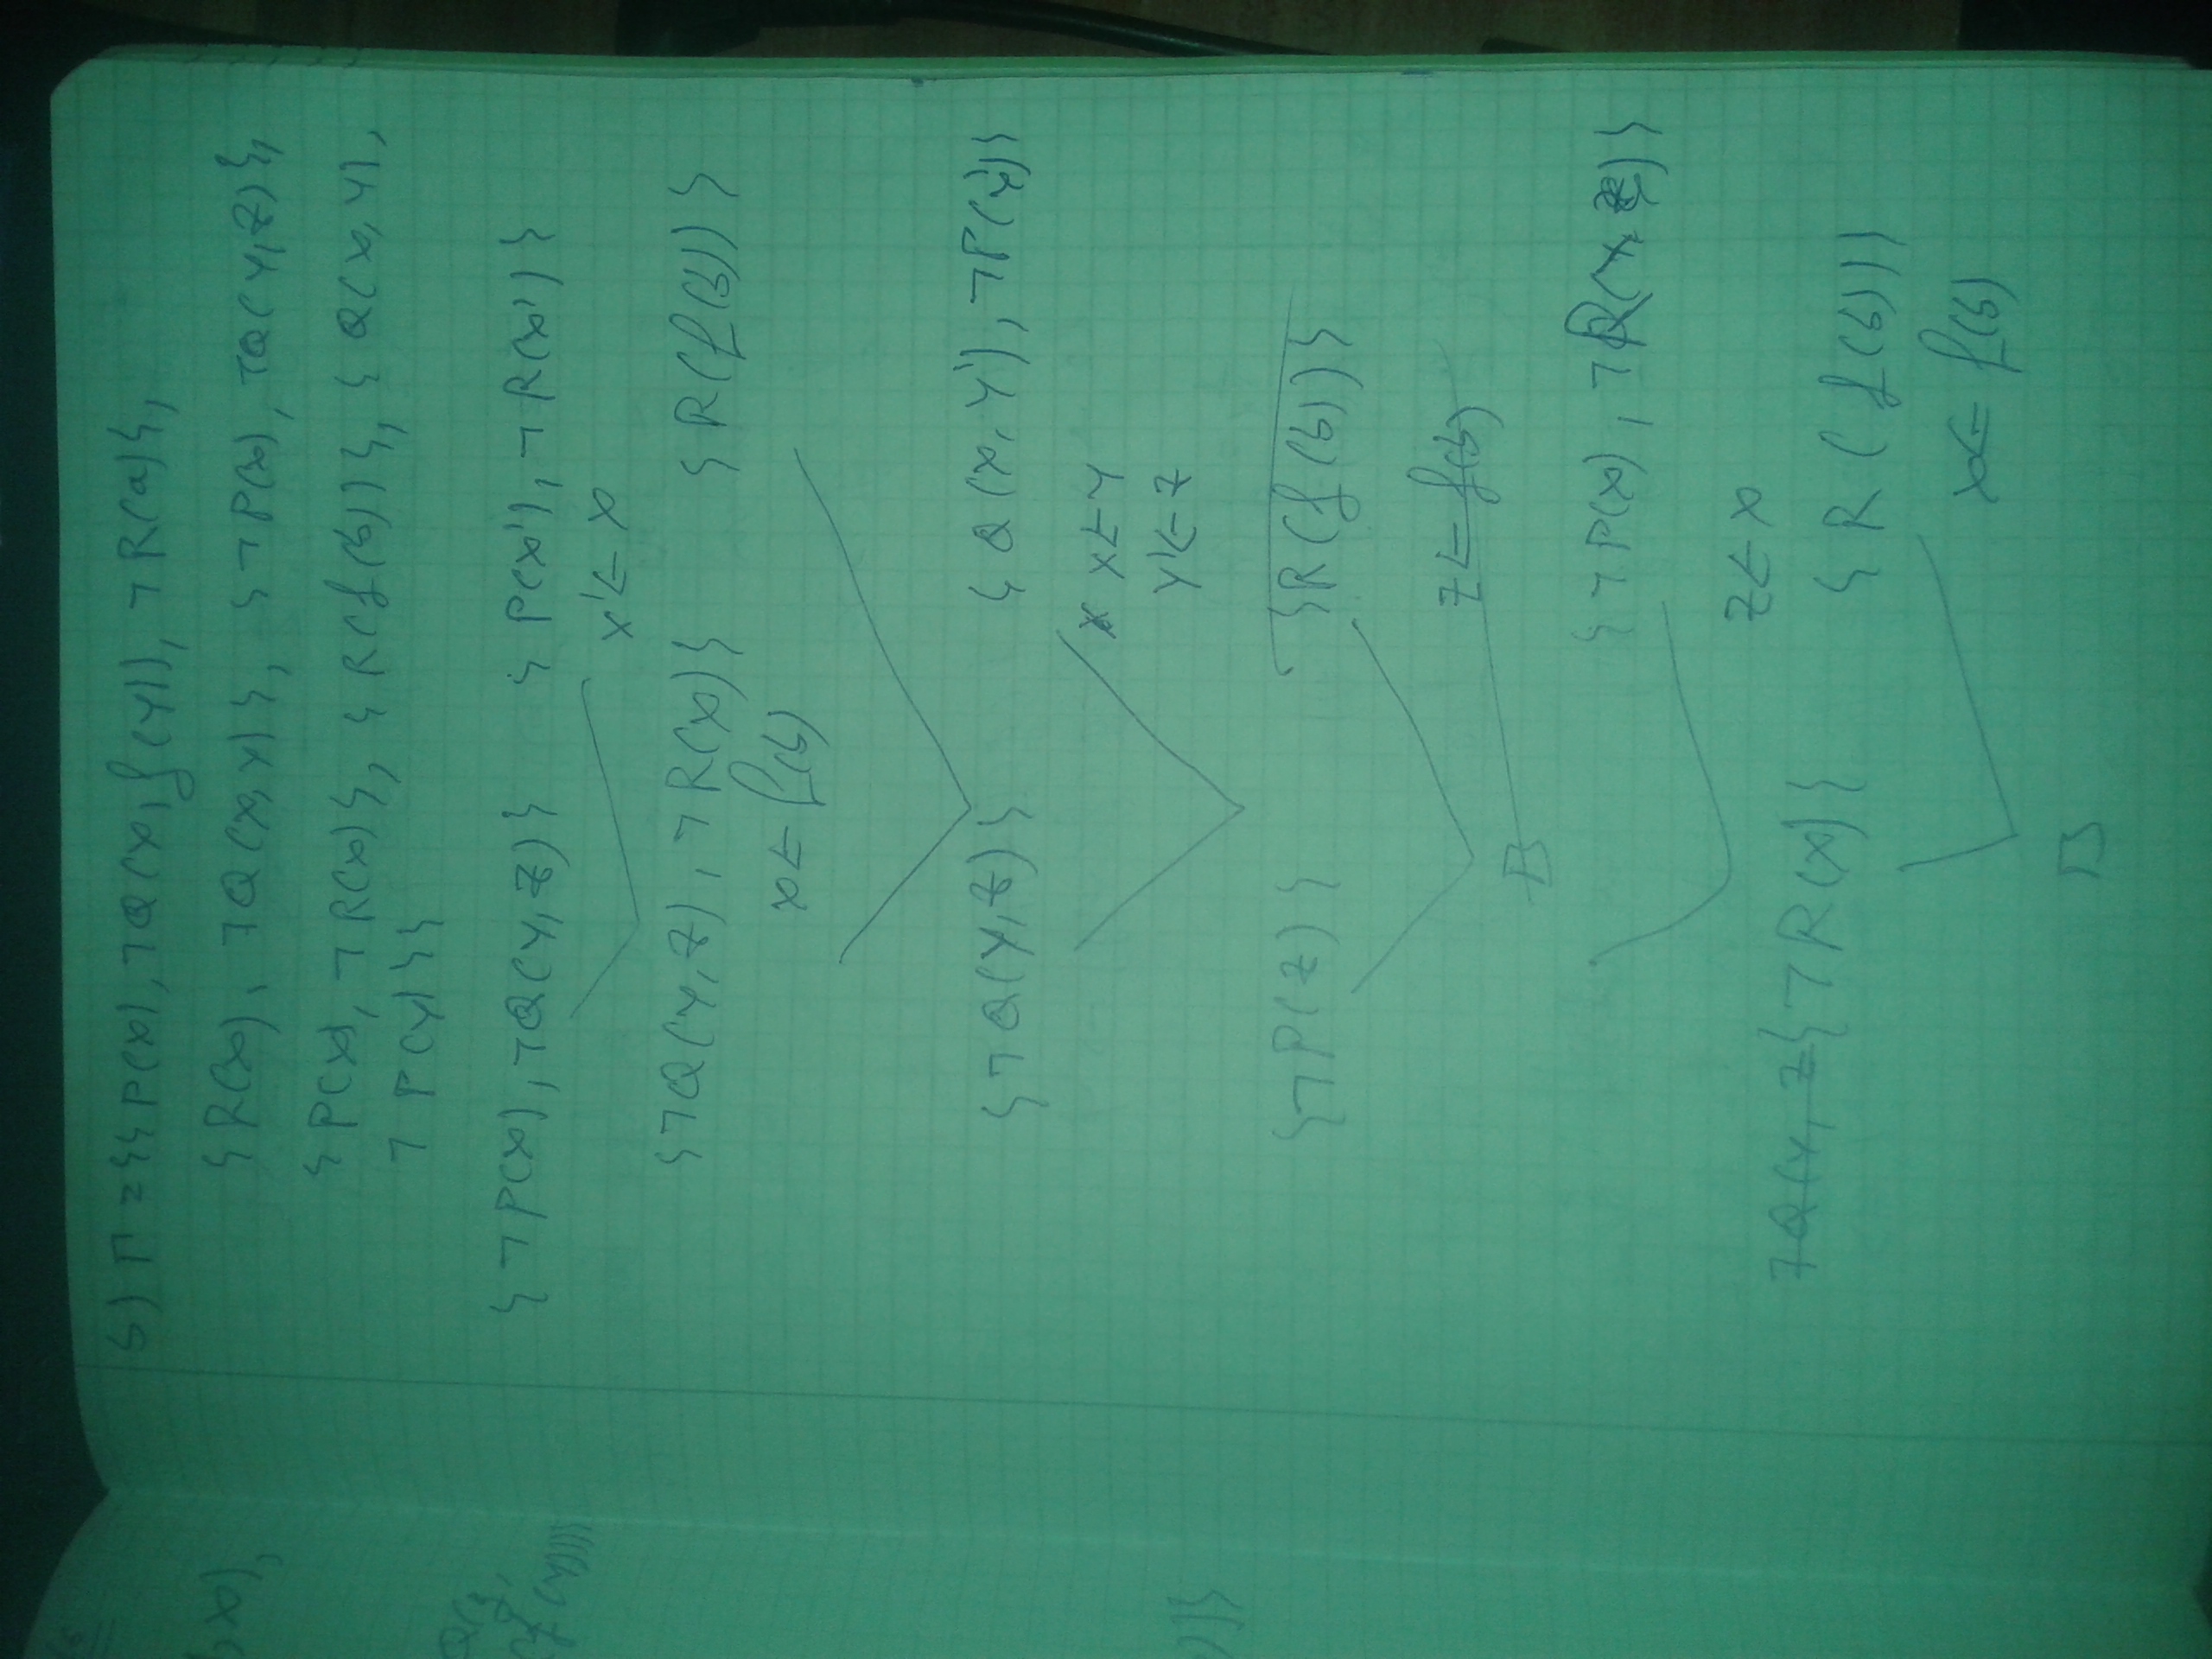 b) Γ = {{P(x), ¬Q(x, f(y)), ¬R(a)},
{R(x), ¬Q(x,y)}, {¬P(x), ¬Q(y,z)},
{P(x), ¬R(x)}, {R(f(b))}, {Q(x,y),
¬P(y)}}
{¬P(x), ¬Q(y,z)} {P(x'), ¬R(x')}
x' ← x
{¬Q(y,z), ¬R(x)} {R(f(b))}
x ← f(b)
{¬Q(y,z)} {Q(x,y'), ¬P(y')}
x ← y
y' ← z
{¬P(z)} {R(f(b))}
z ← f(b)
□
{¬P(x), ¬R(x)}
z ← x
¬Q(y, z {¬R(x)}
{R(f(b))}
x ← f(b)
□